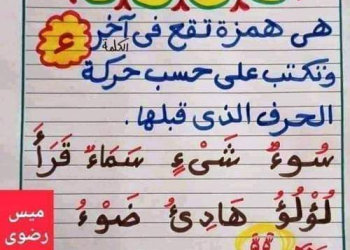 هى همزة تقع فى آخر الكلمة ء
وتكتب على حسب حركة
الحرف الذى قبلها.
سُوءٌ شَىْءٍ سَمَاءٌ قَرَأَ
لُؤْلُؤُ هَادِئُ ضَوْءُ
ميس
رضوى